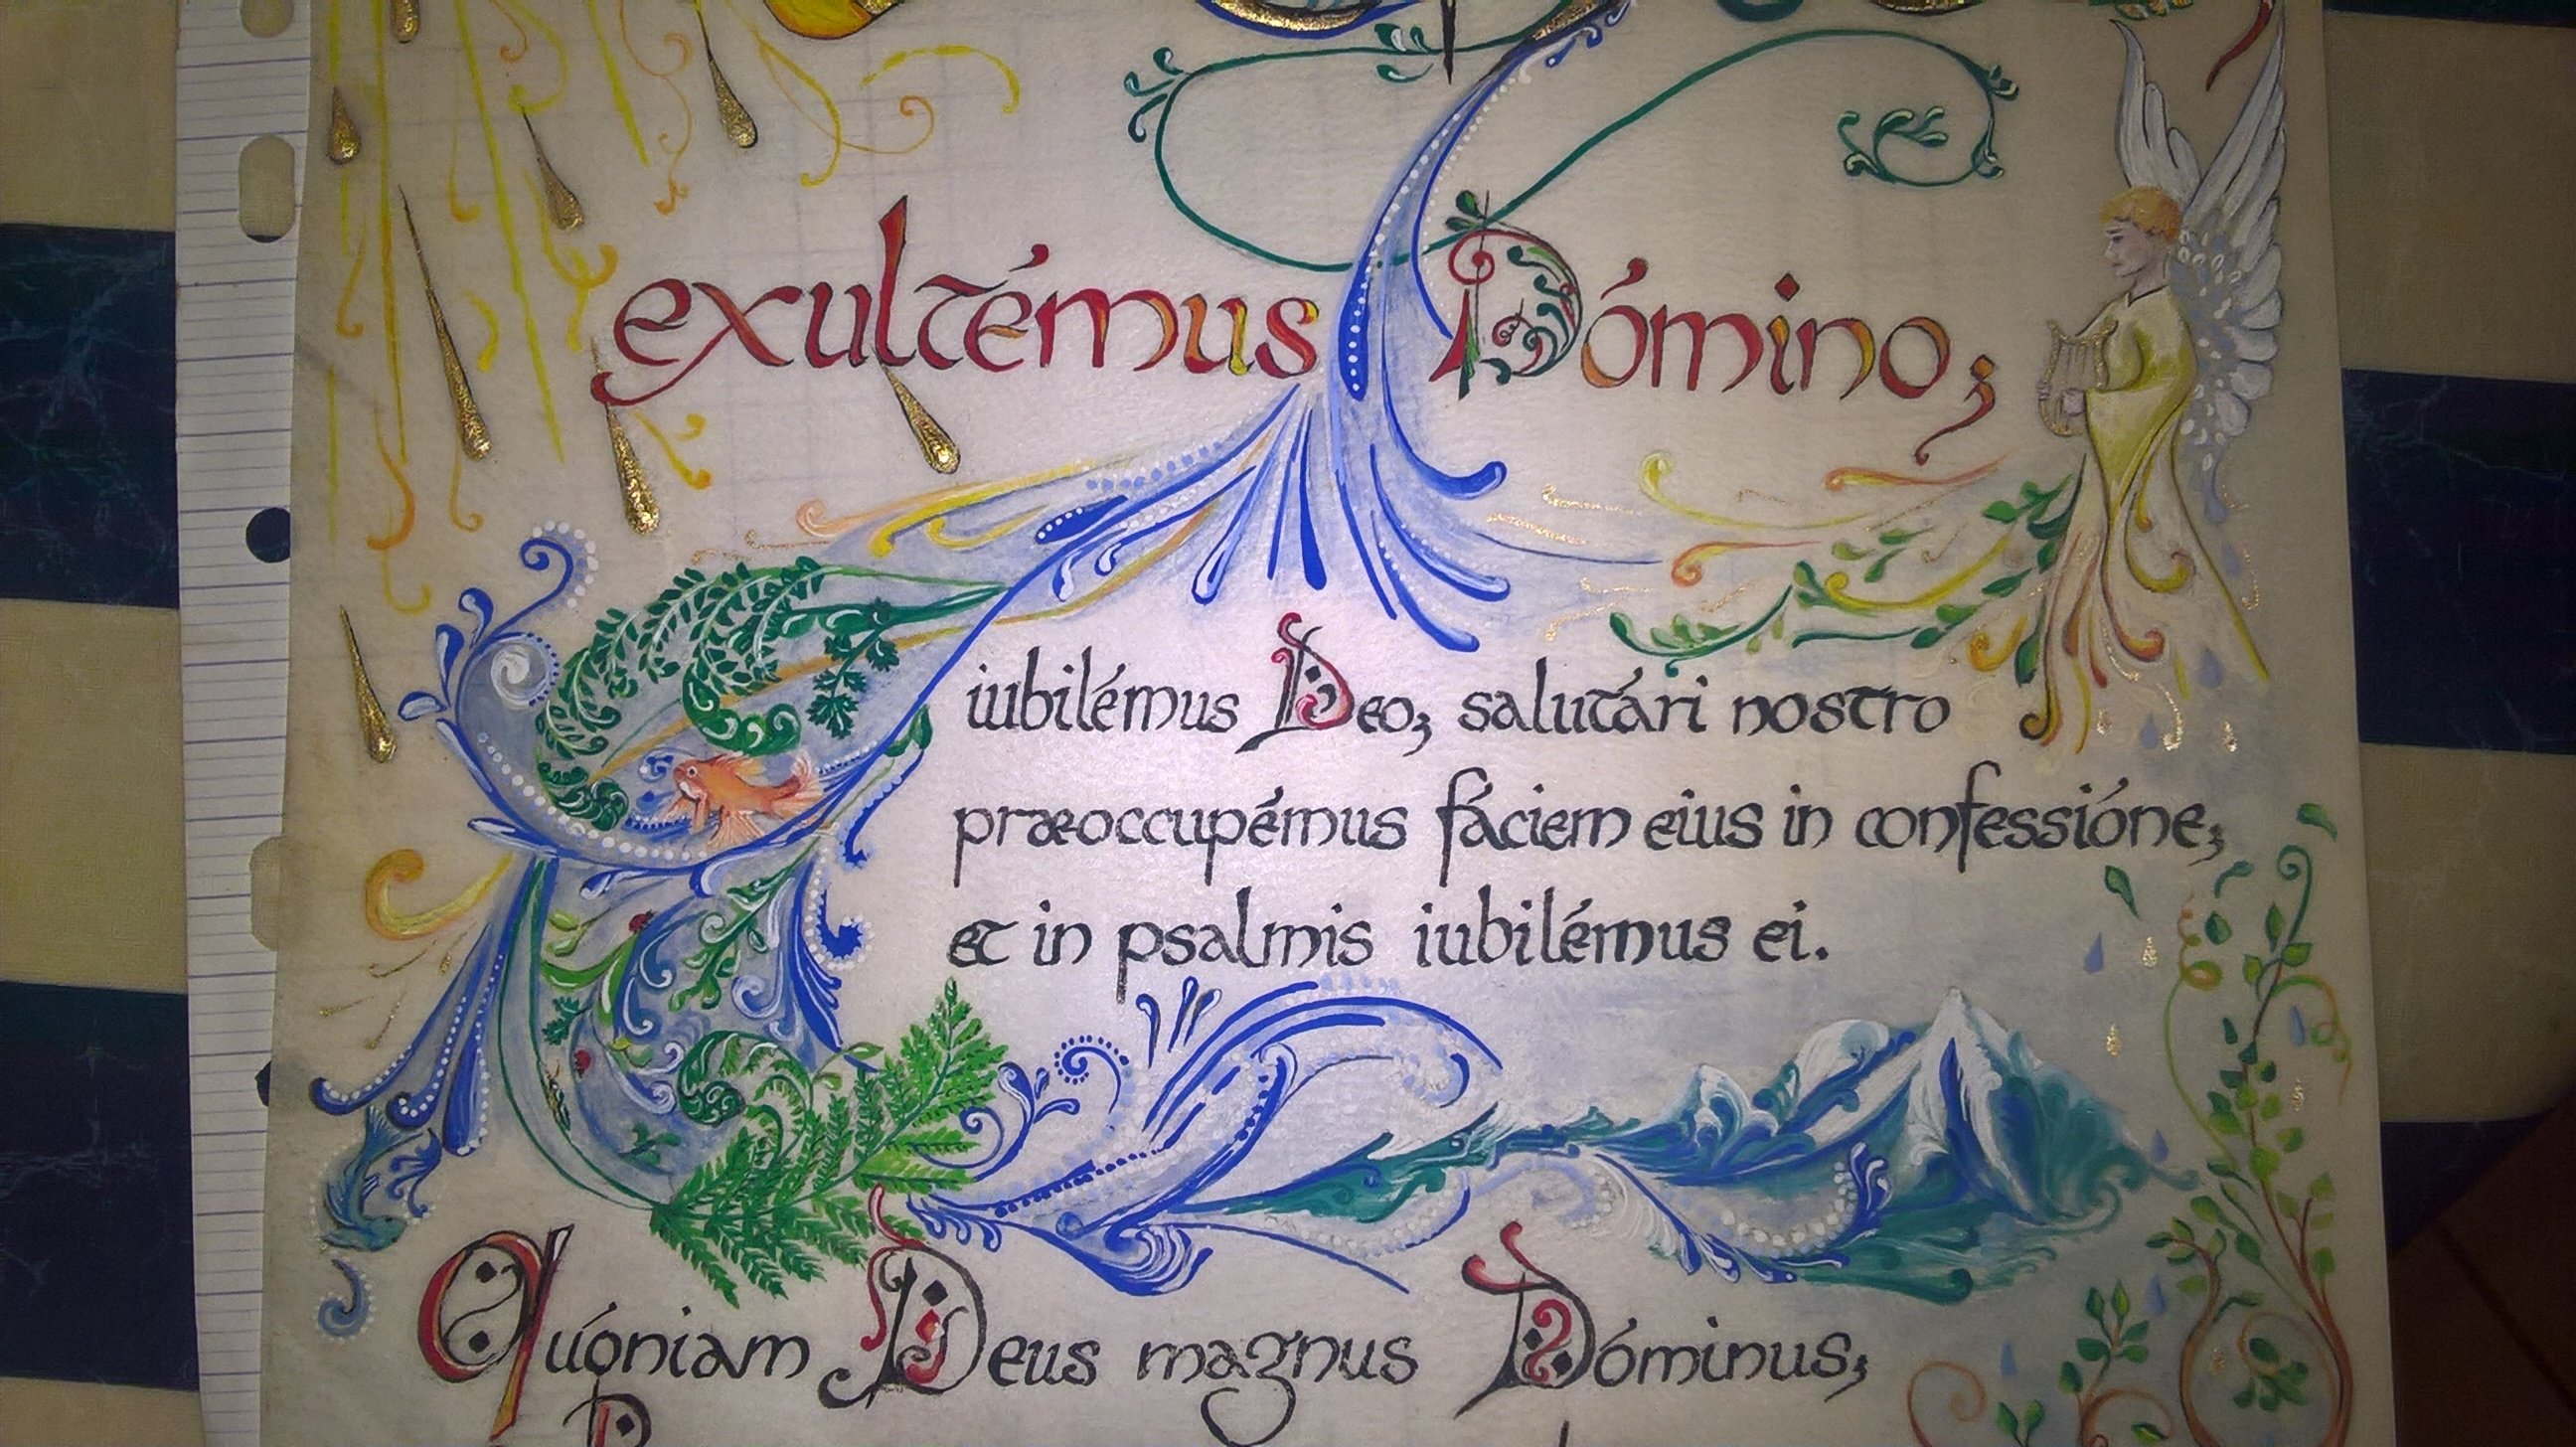 exultémus Dómino;
iubilémus Deo; salutári nostro
præoccupémus fáciem eius in confessióne;
et in psalmis iubilémus ei.
Quóniam Deus magnus Dóminus;